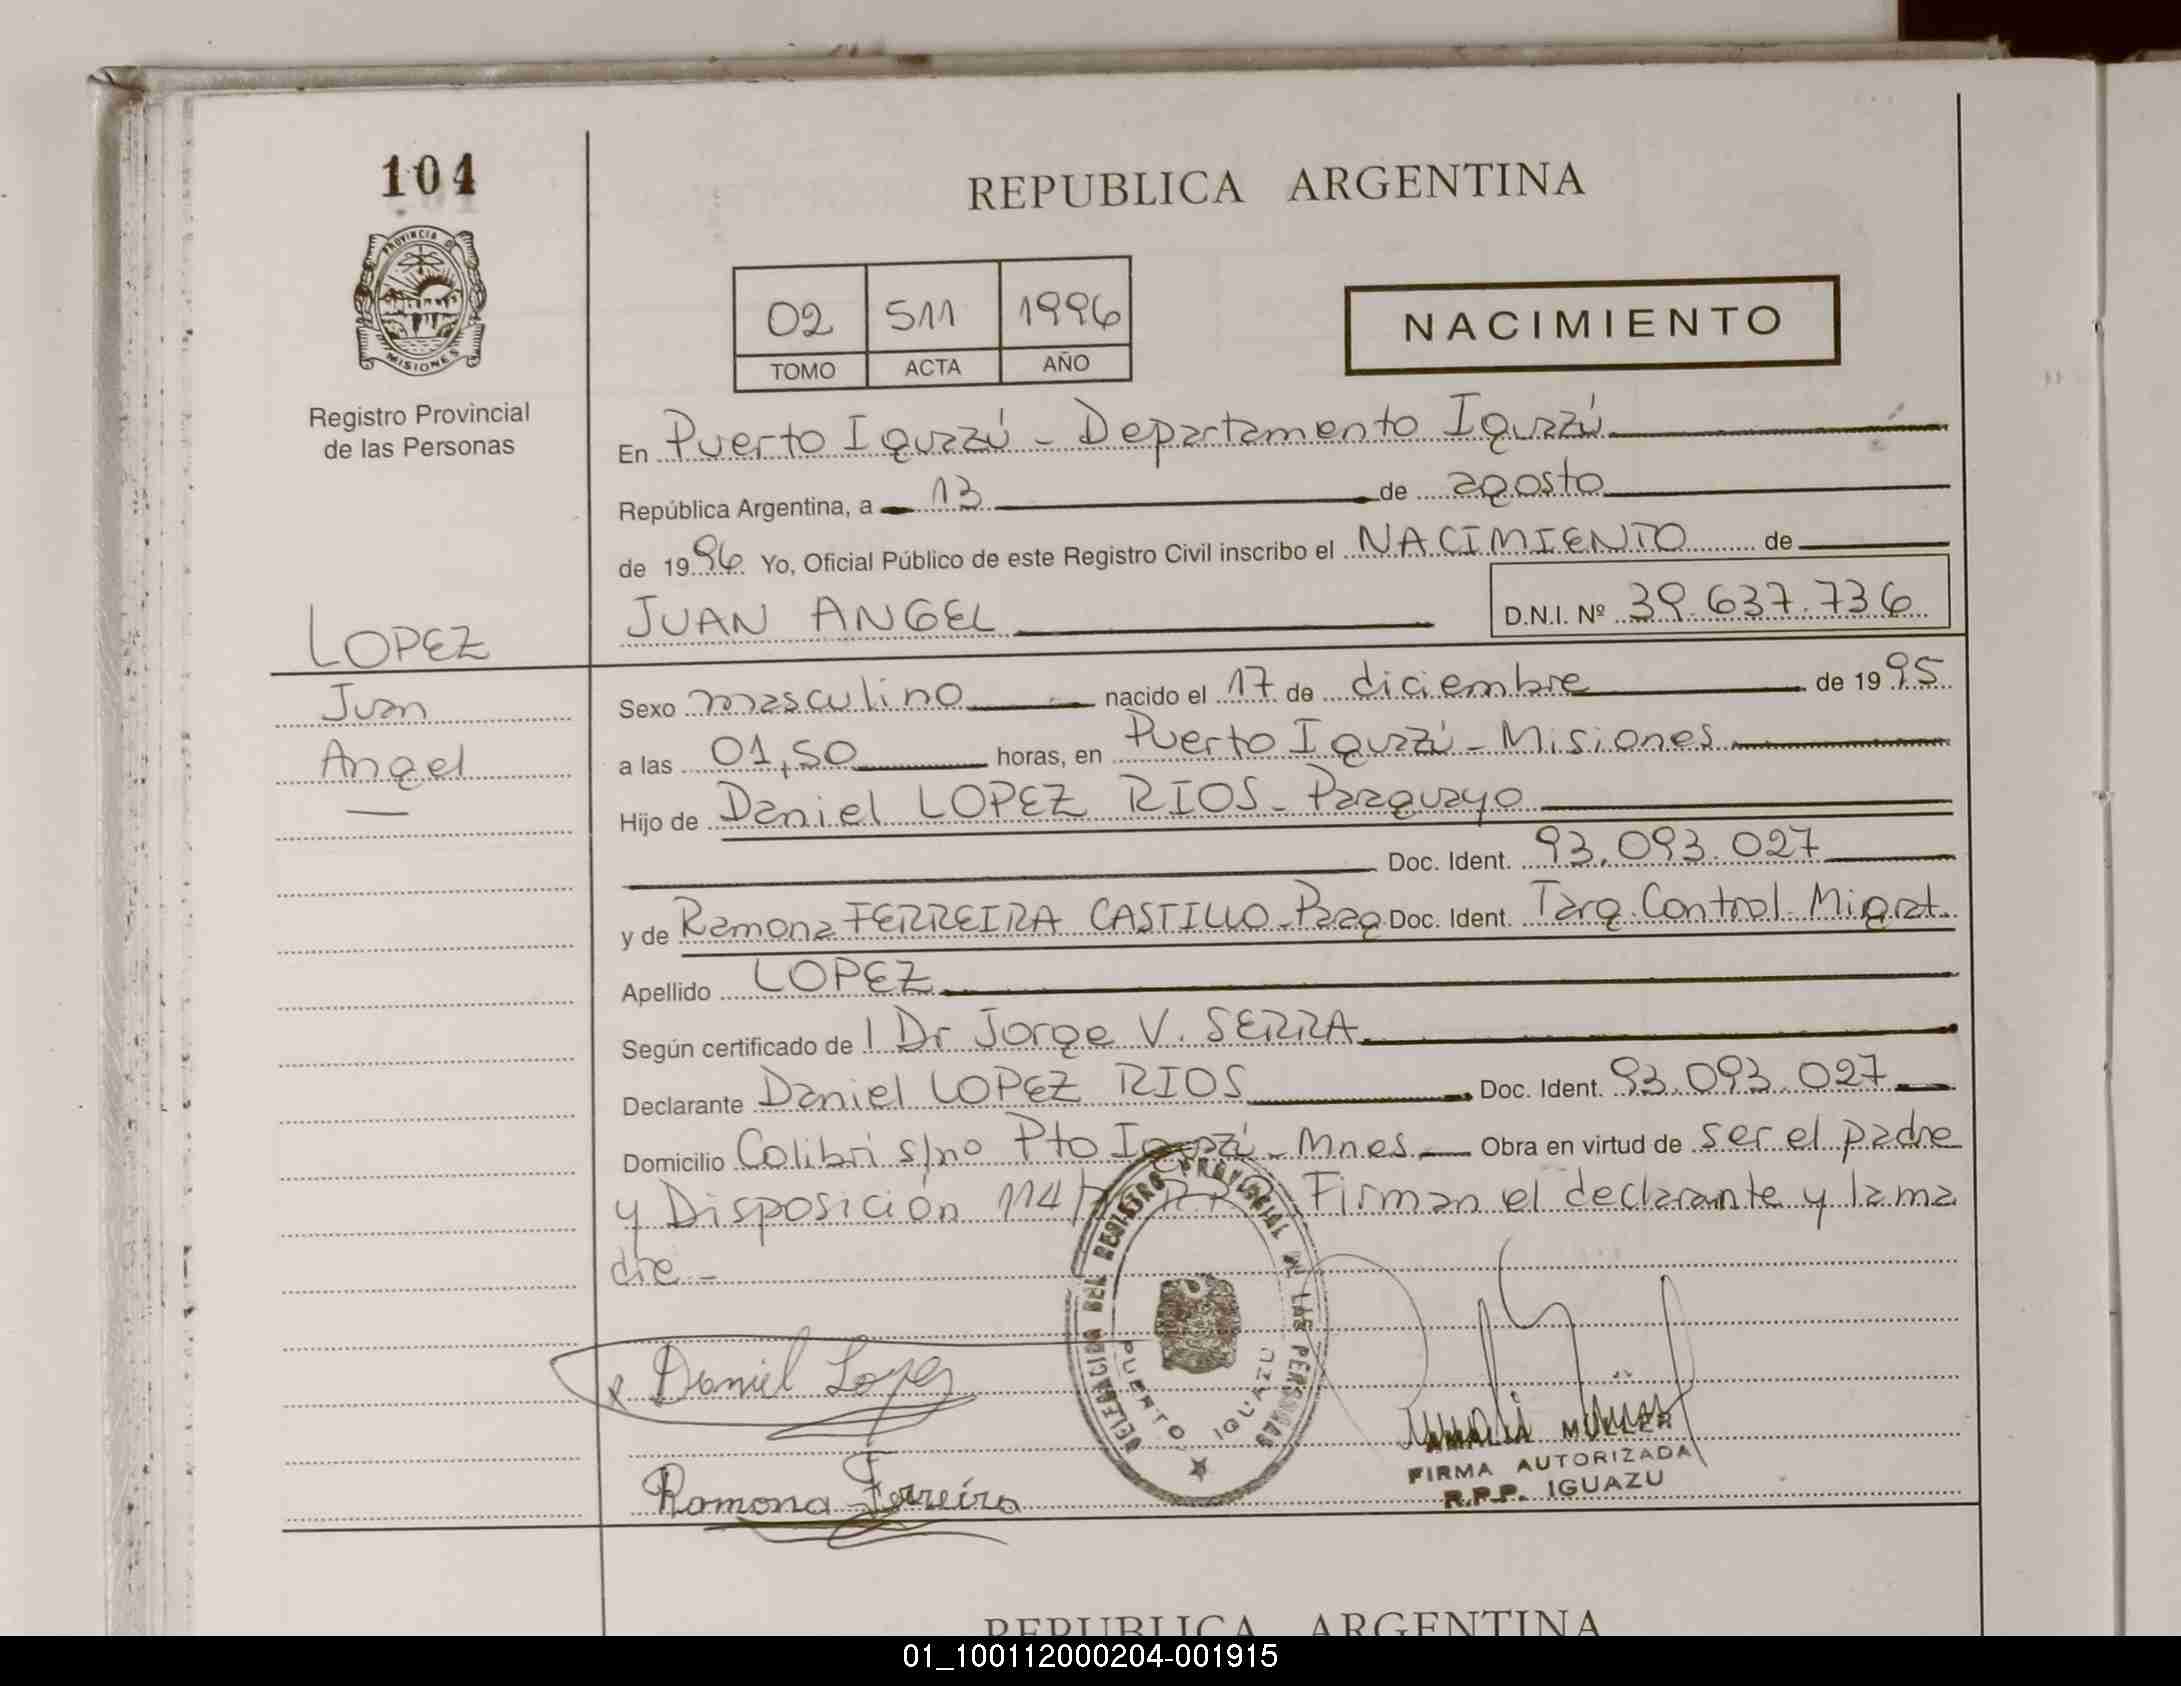 104
PROVINCIA DE
MISIONES
Registro Provincial
de las Personas
REPUBLICA ARGENTINA
02 511 1996
TOMO ACTA AÑO
NACIMIENTO
En Puerto Iguazú - Departamento Iguazú
República Argentina, a 13 de agosto
de 1996 Yo, Oficial Público de este Registro Civil inscribo el NACIMIENTO de
JUAN ANGEL D.N.I. Nº 39.637.736
LOPEZ
Juan
Angel
Sexo masculino nacido el 17 de diciembre de 1995
a las 01,50 horas, en Puerto Iguazú - Misiones
Hijo de Daniel LOPEZ RIOS - Paraguayo
Doc. Ident. 93.093.027
y de Ramona FERREIRA CASTILLO - Parag Doc. Ident. Targ. Control Migrat.
Apellido LOPEZ
Según certificado de l Dr Jorge V. SERRA
Declarante Daniel LOPEZ RIOS Doc. Ident. 93.093.027
Domicilio Colibri s/no Pto Iguazú - Mnes Obra en virtud de ser el padre
y Disposición 114/ Firman el declarante y la ma
dre -
DELEGACION DEL REGISTRO PROVINCIAL DE LAS PERSONAS
PUERTO IGUAZU
Daniel Lopez
Ramona Ferreira
AMALIA MÜLLER
FIRMA AUTORIZADA
R.P.P. IGUAZU
REPUBLICA ARGENTINA
01_100112000204-001915